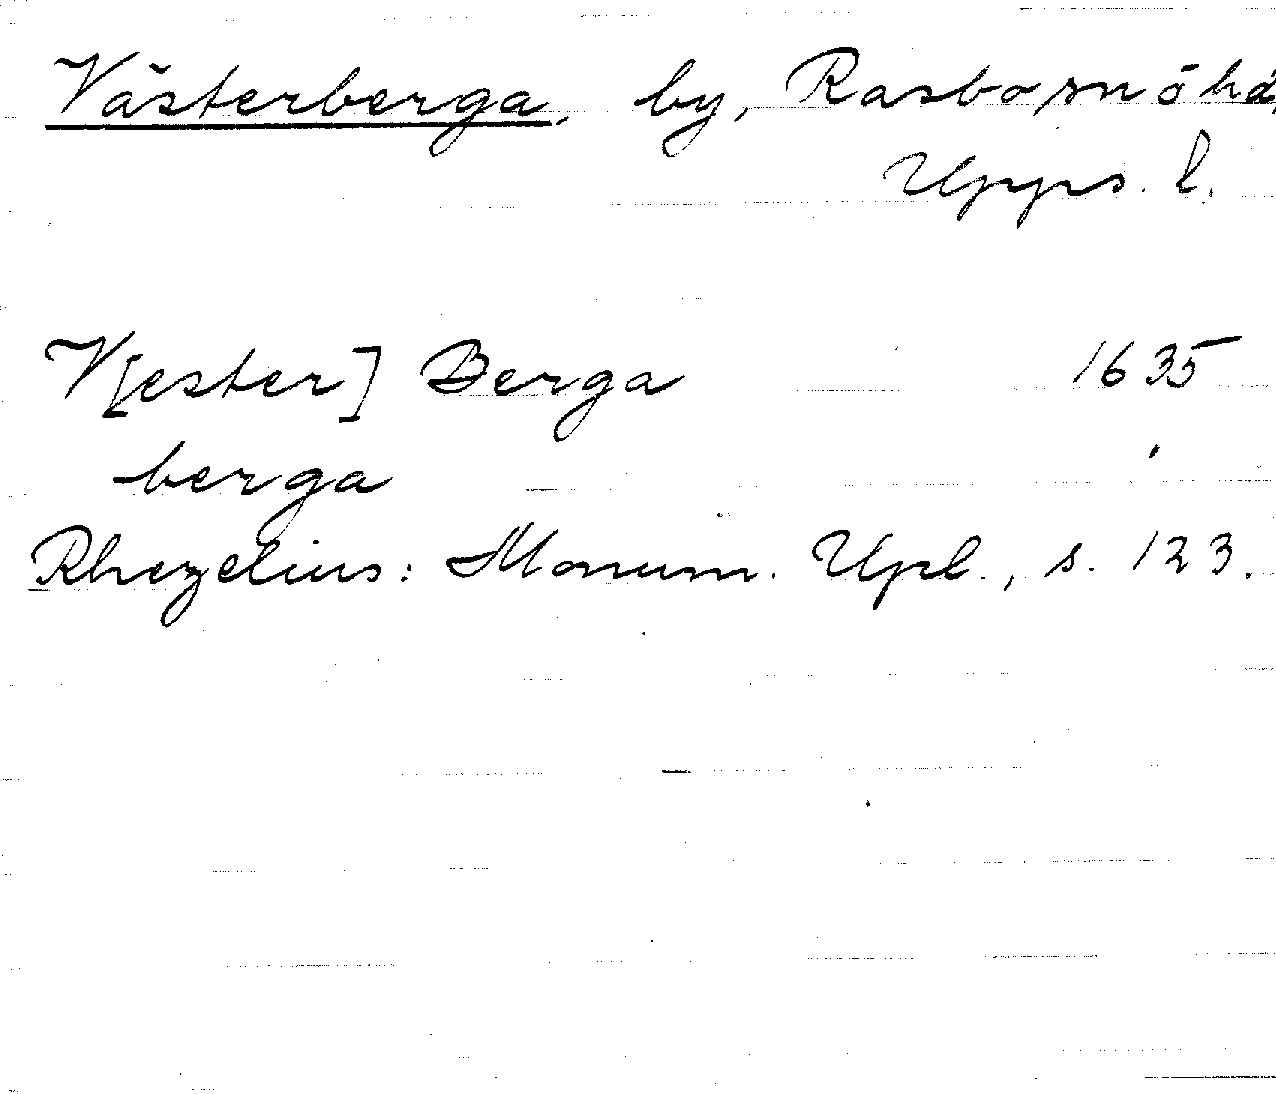 Västerberga, by, Rasbo sn ö hd,
Upps. l.
V[ester] Berga 1635
berga
Rhezelius: Monum. Upl., s. 123.